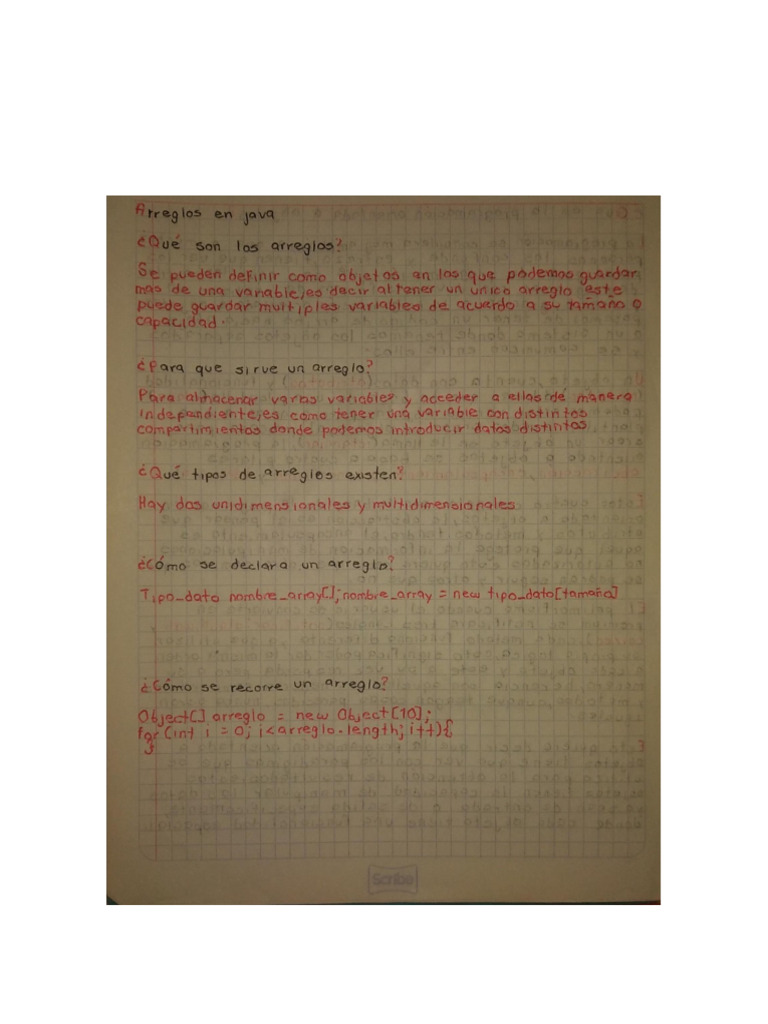 Arreglos en java
¿Qué son los arreglos?
Se pueden definir como objetos en los que podemos guardar
mas de una variable, es decir al tener un unico arreglo este
puede guardar multiples variables de acuerdo a su tamaño o
capacidad.
¿Para que sirve un arreglo?
Para almacenar varias variables y acceder a ellas de manera
independiente, es como tener una variable con distintos
compartimientos donde podemos introducir datos distintos.
¿Qué tipos de arreglos existen?
Hay dos unidimensionales y multidimensionales.
¿Cómo se declara un arreglo?
Tipo_dato nombre_array[]; nombre_array = new tipo_dato[tamaño]
¿Cómo se recorre un arreglo?
Object[] arreglo = new Object[10];
for (int i = 0; i < arreglo.length; i++){
}
Scribe